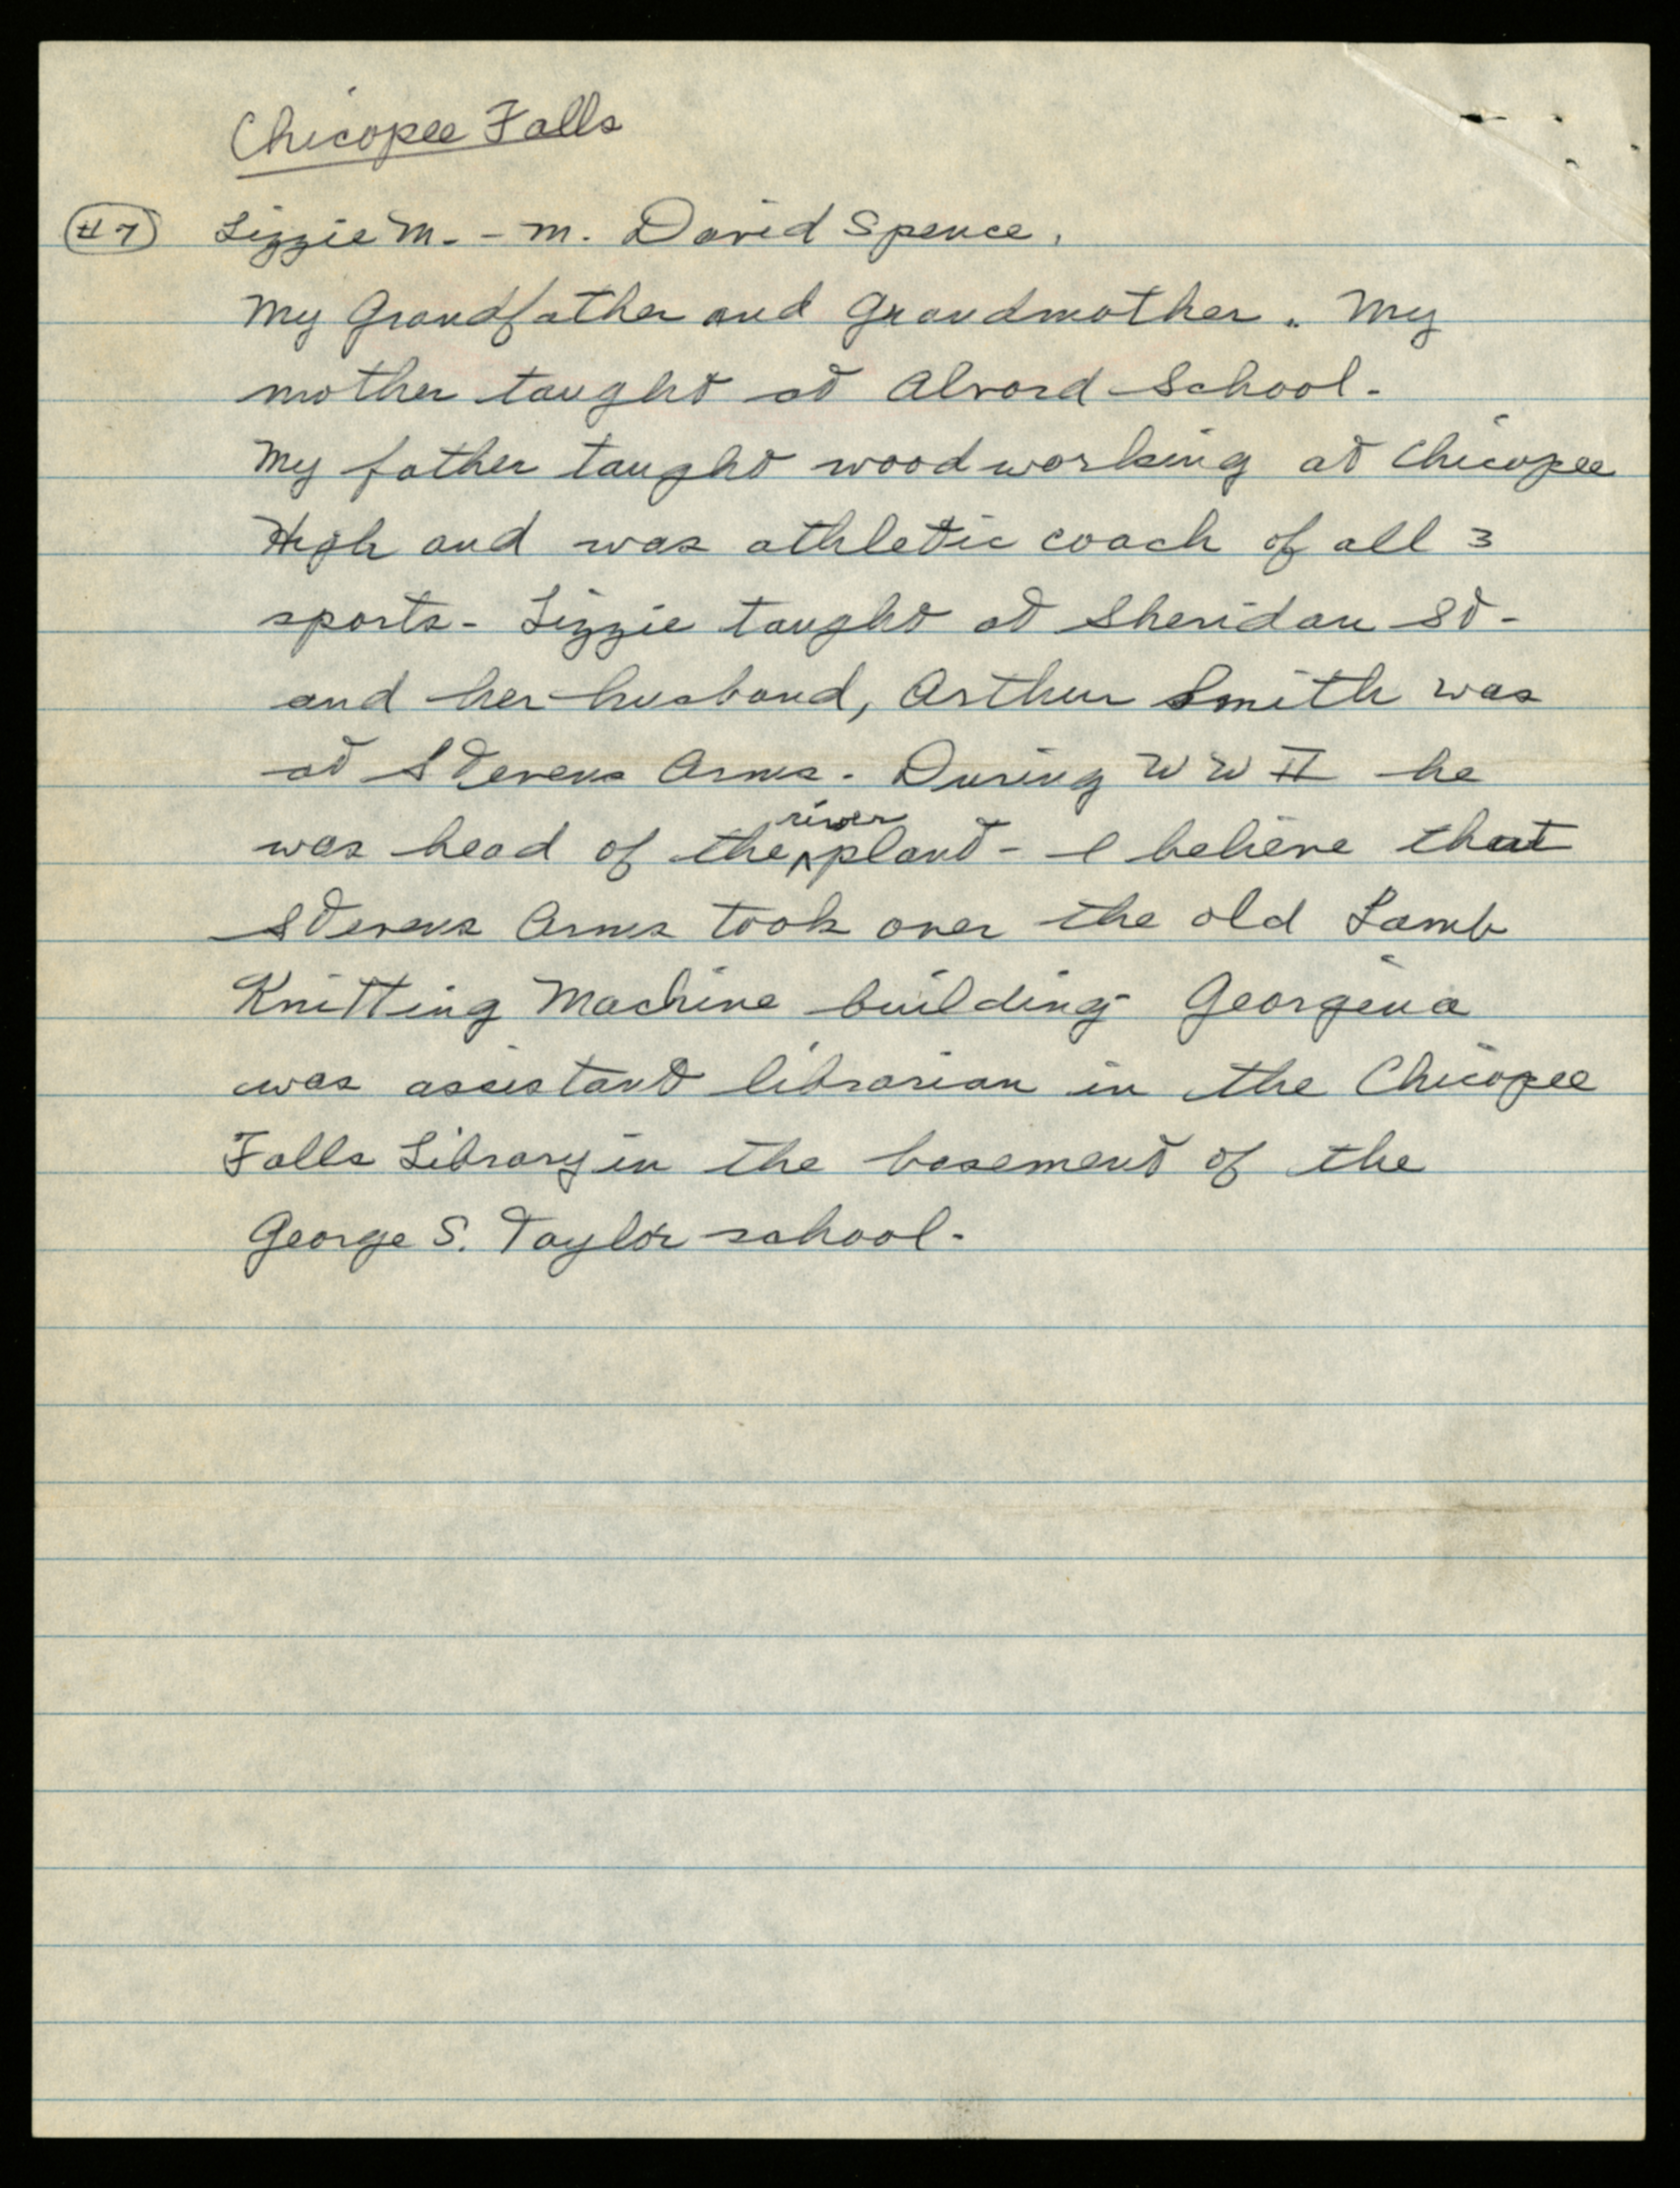 Chicopee Falls
#7 Lizzie M. - m. David Spence.
My Grandfather and Grandmother. My
mother taught at Alvord School.
My father taught woodworking at Chicopee
High and was athletic coach of all 3
sports - Lizzie taught at Sheridan St -
and her husband, Arthur Smith was
at Stevens Arms. During WW II he
river
was head of the ^ plant - I believe that
Stevens Arms took over the old Lamb
Knitting Machine building - Georgina
was assistant librarian in the Chicopee
Falls Library in the basement of the
George S. Taylor school.